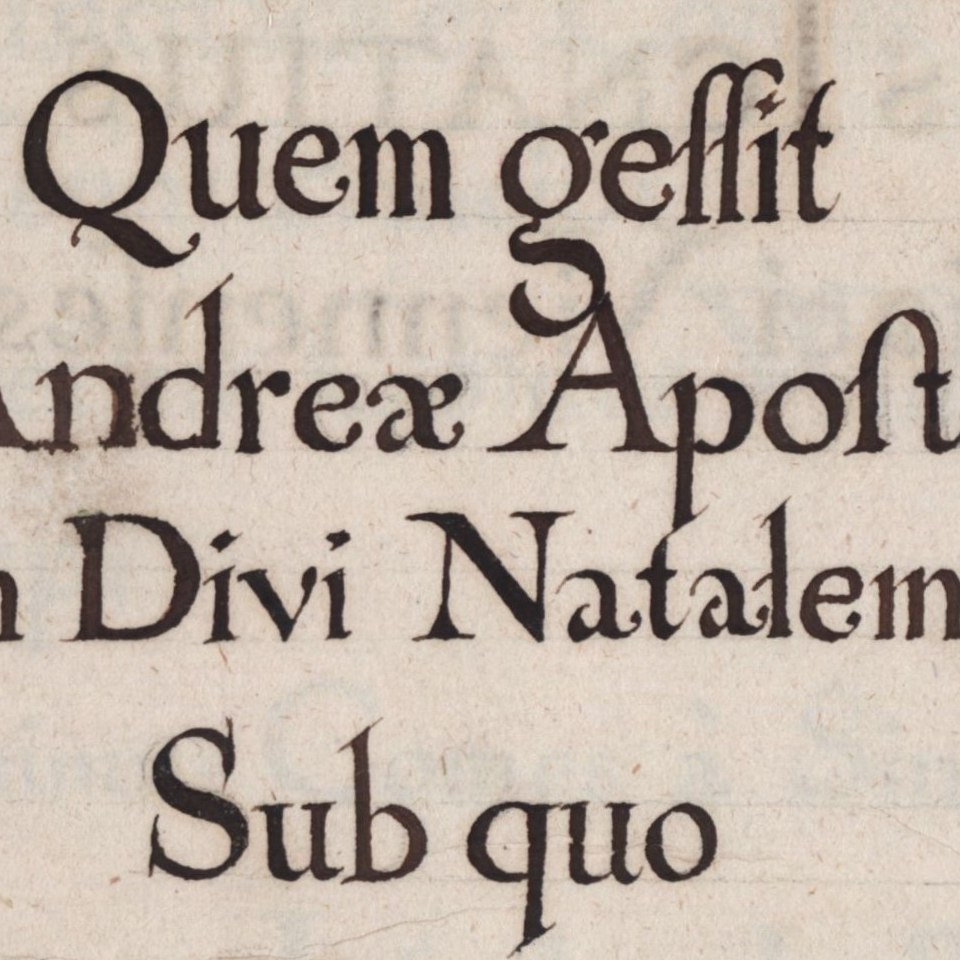 Quem geſſit
Andreæ Apoſt
Divi Natalem
Sub quo